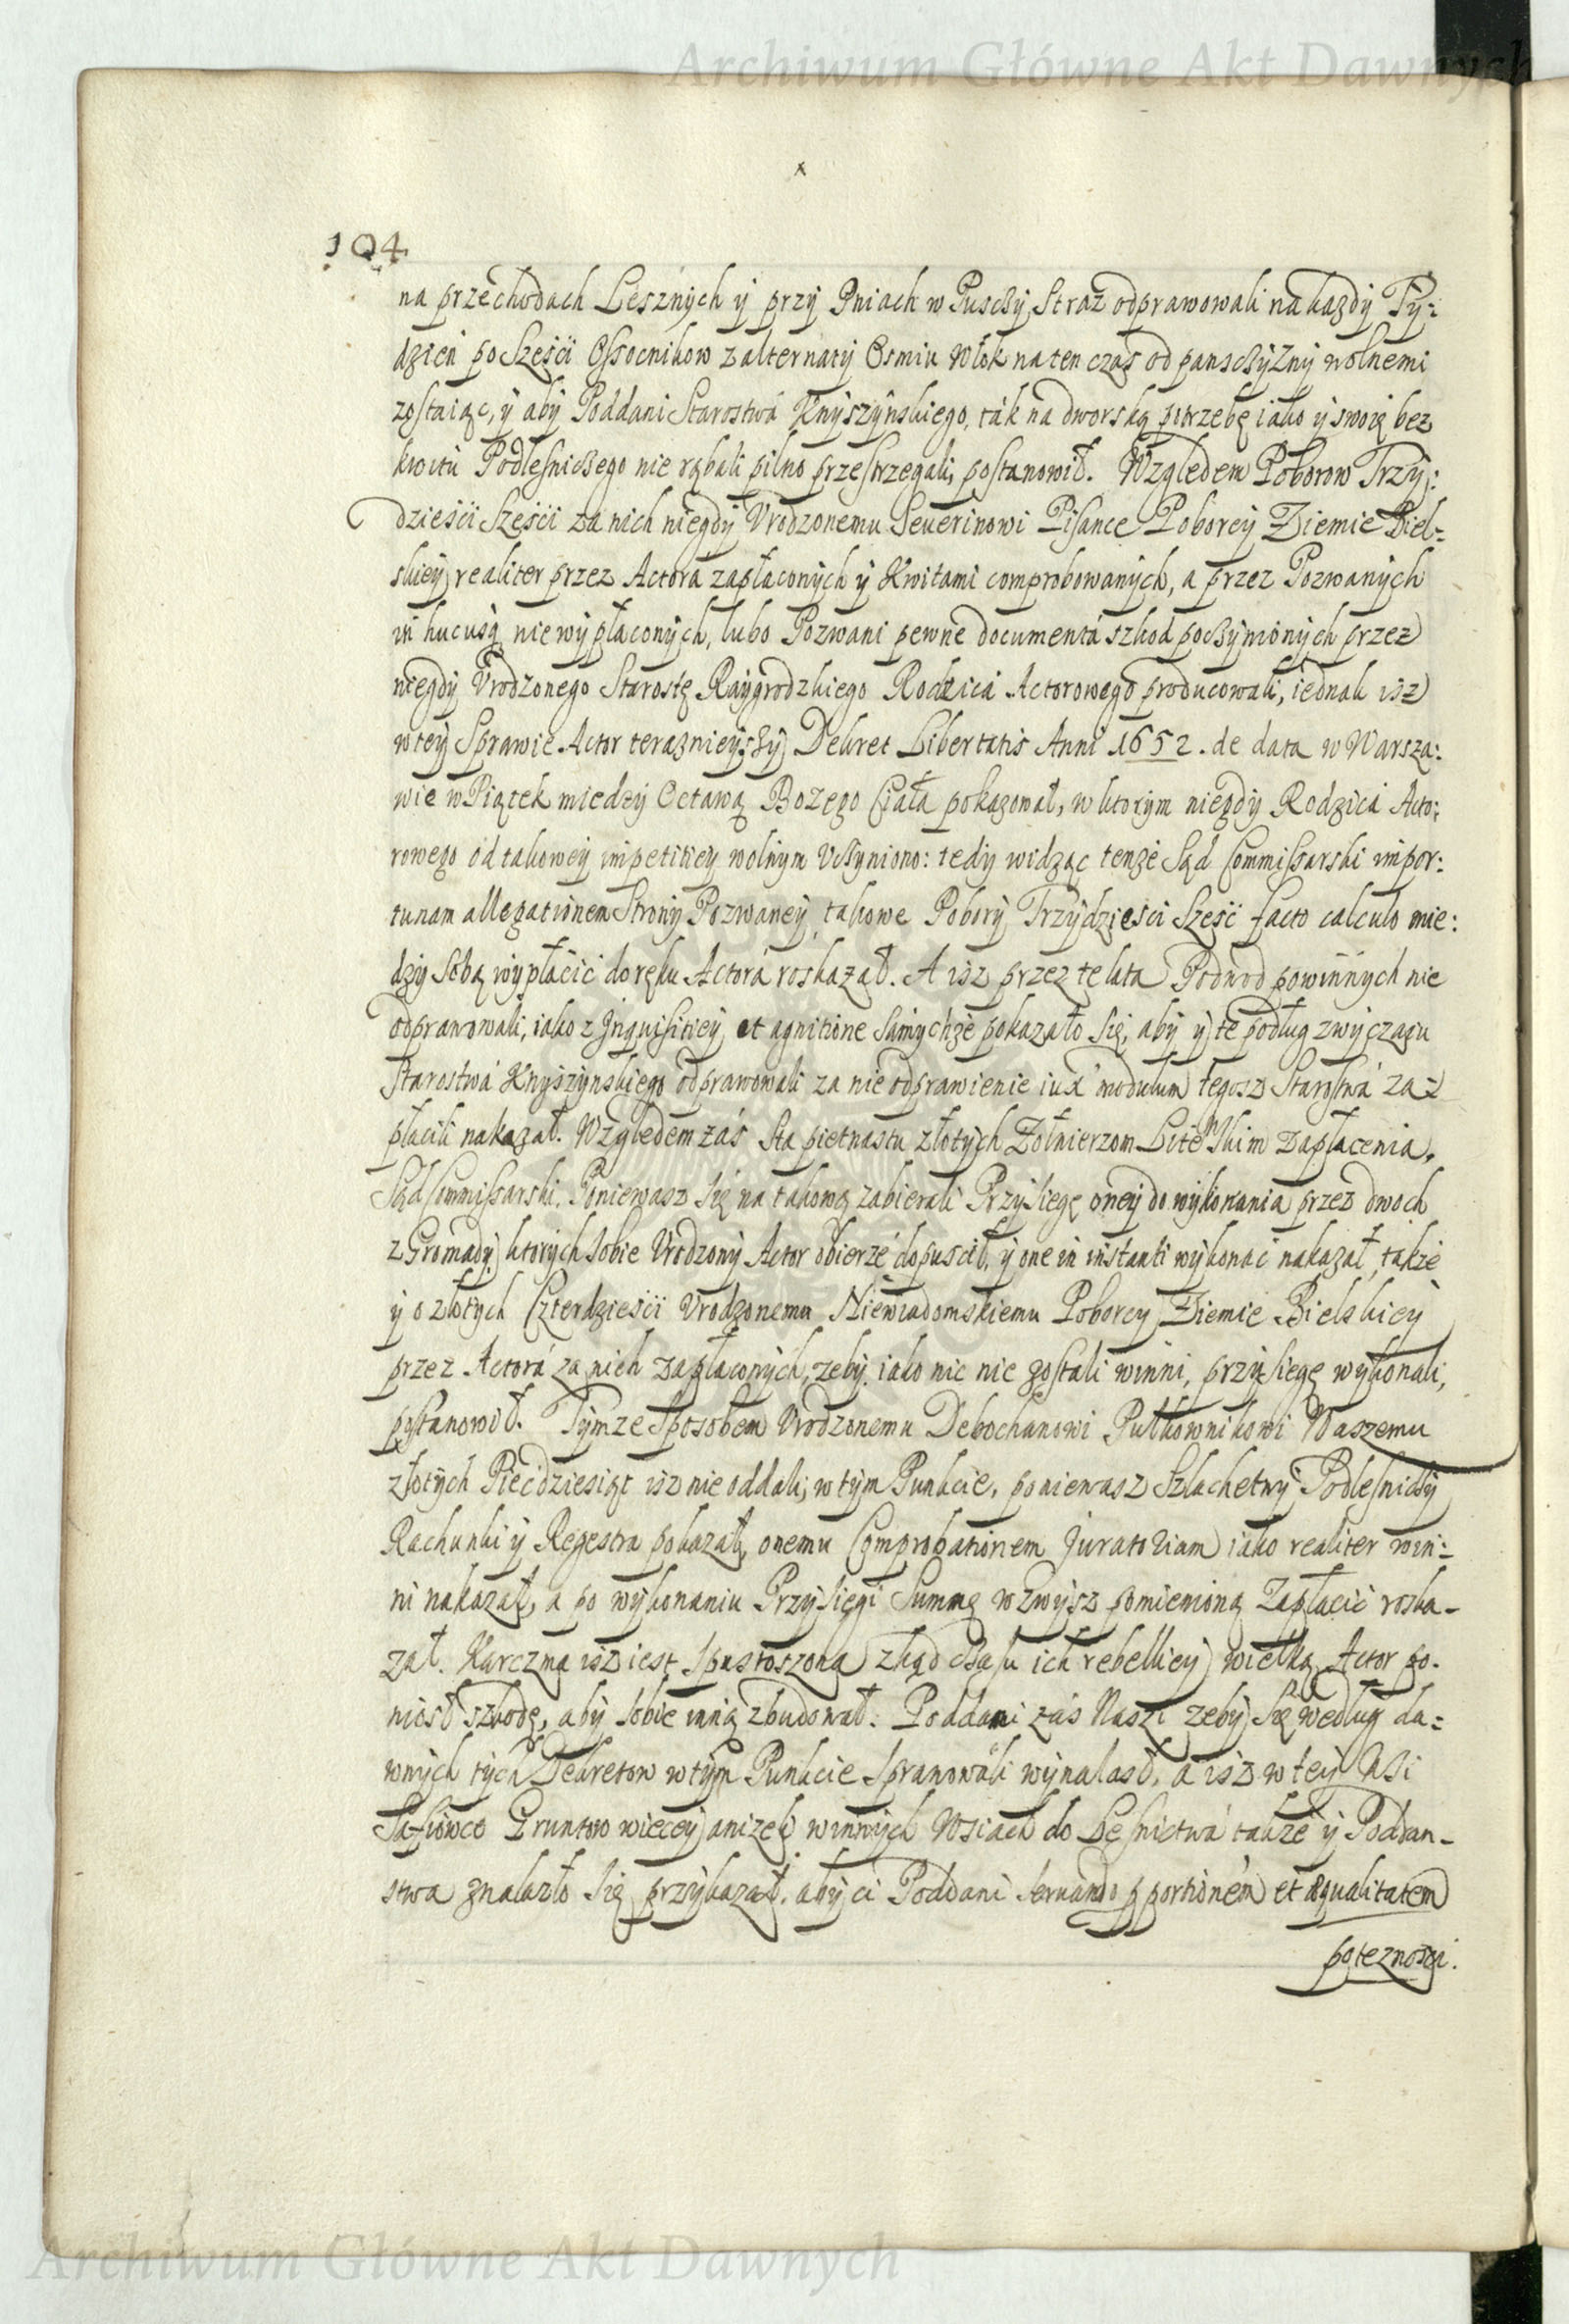 Archiwum Główne Akt Dawnych
x
104
na przechodach Lesznych y przy Pniach w Pusczy Straż odprawowali na każdy Ty:
dzień po Sześći Ossocnikow z alternaty Osmiu Włok na ten czas od pansczyzny wolnemi
zostaiąc, y aby Poddani Starostwá Knyszynskiego, ták na dworską potrzebę iako y swoię bez
kwitu Podlesniczego nie rąbali pilno przestrzegali, postanowił. Względem Poborow Trzy:
dzieśći Sześći za nich niegdy Vrodzonemu Seuerinowi Pisance Poborcy Ziemie Biel=
skiey realiter przez Actorá zapłaconych y Kwitami comprobowanych, a przez Pozwanych
in hucusq niewypłaconych, lubo Pozwani pewne documentá szkod poczynionych przez
niegdy Vrodzonego Starostę Raygrodzkiego Rodzicá Actorowego producowali, iednak isz
w tey Sprawie Actor terazniejszy Dekret Libertatis Anni 1652. de data w Warsza:
wie w Piątek miedzy Octawą Bozego Ciała pokazował, w ktorym niegdy Rodzicá Acto:
rowego od takowey impetitiey wolnym Vczyniono: tedy widząc tenże Sąd Commissarski impor:
tunam allegationem Strony Pozwaney, takowe Pobory Trzydzieści Sześć facto calculo mie:
dzy Sobą wypłacić do ręku Actorá roskazał. A isz przez te lata Podwod powinnych nie
odprawowali, iako z Jnquisitiey et agnitione samychże pokazało się, aby y te podług zwyczaiu
Starostwá Knyszynskiego odprawowali za nie odprawienie iuxa modulum tegosz Starostwá za=
płacili nakazał. Względem záś Sta pietnastu złotych Zołnierzom Litewskim zapłacenia,
Sąd Commissarski, Poniewasz się na takową zabierali Przysięgę oney do wykonania przez dwoch
z Gromady, ktorych sobie Vrodzony Actor obierze dopuscił, y one in instanti wykonać nakazał, także
y o złotych Czterdzieśći Vrodzonemu Niewiadomskiemu Poborcy Ziemie Bielskiey
przez Actorá za nich zapłaconych, żeby iako nic nie zostali winni, przysięgę wykonali,
postanowił. Tymże Sposobem Vrodzonemu Debochanowi Pułkownikowi Naszemu
złotych Piećdziesiąt isz nie oddali, w tym Punkcie, poniewasz Szlachetny Podlesniczy
Rachunki y Regestra pokazał, onemu Comprobationem Juratoriam iako realiter win:
ni nakazał, a po wykonaniu Przysięgi Summę wzwysz pomienioną Zapłacić roska-
zał. Karczma isz iest Spustoszona zkąd czasu ich rebelliey wielką Actor po-
niosł szkodę, aby sobie inną zbudował. Poddani zás Naszi zeby się według da=
wnych tych Dekretow w tym Punkcie Sprawowali wynalasł, a isz w tey Wsi
Gruntow wiecey aniżeli w innych Wsiach do Lesnictwá także y Poddan-
stwa znalazło się, przykazał, aby ci Poddani seruando pportionem et aequalitatem
potezności.
Archiwum Główne Akt Dawnych